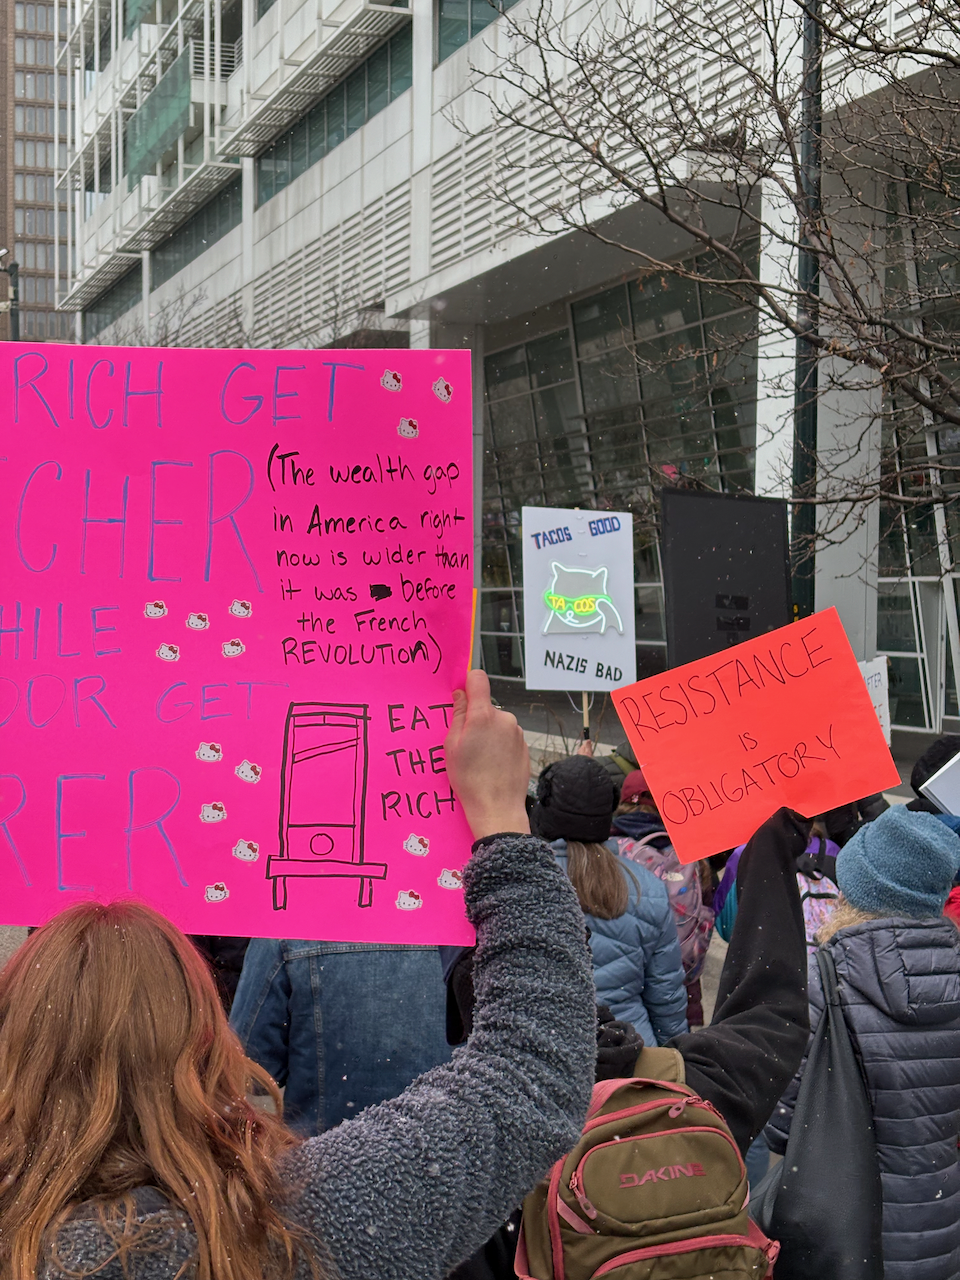 RICH GET
CHER
HILE
OOR GET
RER
(The wealth gap
in America right
now is wider than
it was before
the French
REVOLUTION)
EAT
THE
RICH
TACOS GOOD
TA COS
NAZIS BAD
RESISTANCE
IS
OBLIGATORY
DAKINE